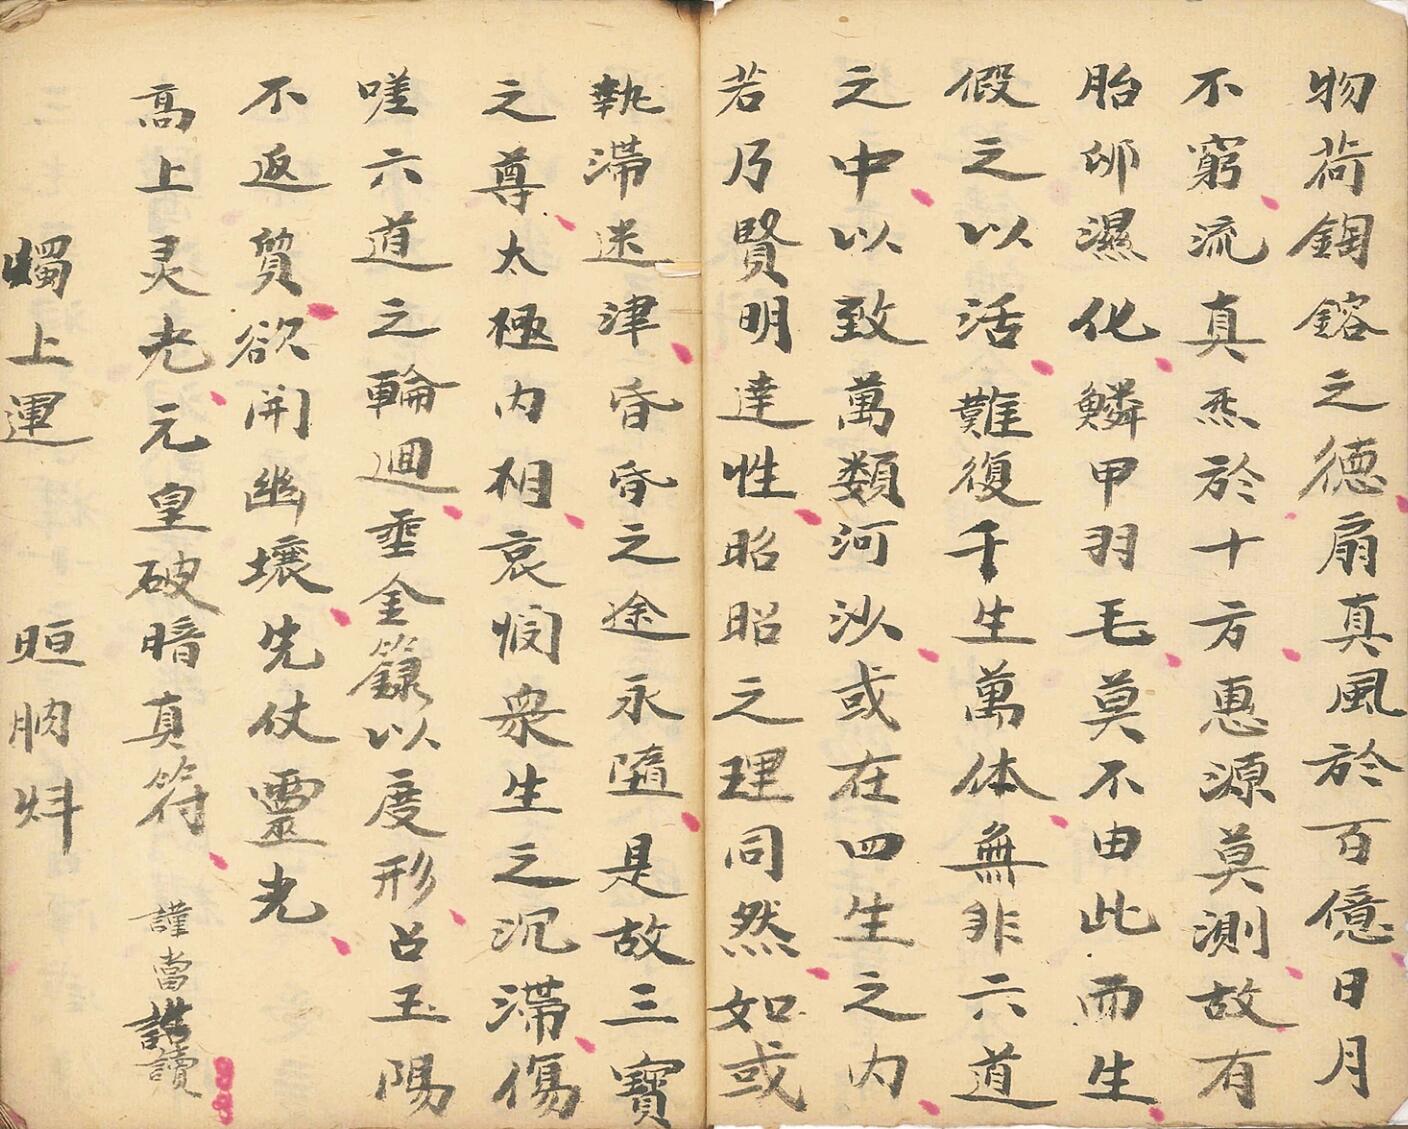 物荷鈿鎔之德扇真風於百億日月
不窮流真炁於十方惠源莫測故有
胎卵濕化鱗甲羽毛莫不由此而生
假之以活難復千生萬体無非六道
之中以致萬類河沙或在四生之内
若乃賢明達性昭昭之理同然如或
執滯迷津昏昏之途永墮是故三寶
之尊太極内相哀憫衆生之沉滯傷
嗟六道之輪迴垂金籙以度形召玉陽
不返質欲開幽壤先仗靈光
高上灵老元皇破暗真符 謹當請讀
燭上運 晅肭炓